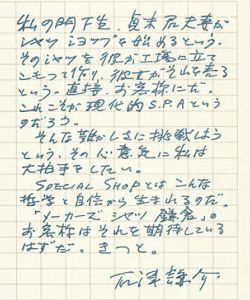 私の門下生、貞末君夫妻が
シャツ ショップを始めるという。
そのシャツを彼が工場に立て
こもって作り、彼女がそれを売る
という。直接、お客様にだ。
これこそが現代的S.P.Aという
のだろう。
そんな難かしさに挑戦しよう
という、その心意気に私は
大拍手をしたい。
SPECIAL SHOPとはこんな
哲学と自信から生まれるのだ。
「メーカーズ シャツ 鎌倉」の
お客様はそれを期待している
はずだ。きっと。
石津謙介